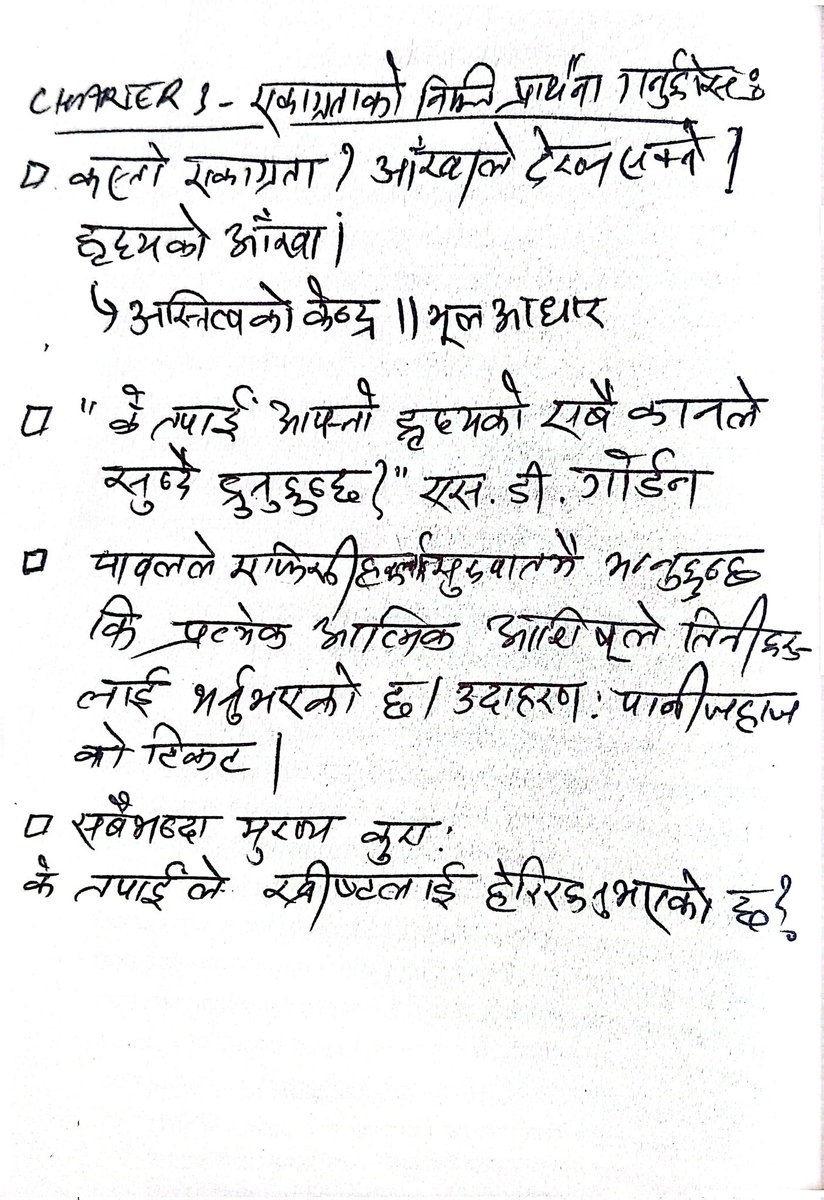 CHAPTER 1 - एकाग्रताको निम्ति प्रार्थना गर्नुहोस्:
कस्तो एकाग्रता? आँखाले देख्न सक्ने?
हृदयको आँखा।
↳ अस्तित्वको केन्द्र || मूल आधार
"के तपाईं आफ्नो हृदयको सबै कानले
सुन्दै हुनुहुन्छ?" एस. डी. गोर्डन
पावलले एफिसी सुरुवातमै भन्नुहुन्छ
कि प्रत्येक आत्मिक आशिष्‌ले तिनीहरु-
लाई भर्नुभएको छ। उदाहरण: पानीजहाज
को टिकट।
सबैभन्दा मुख्य कुरा:
के तपाईंले ख्रीष्टलाई हेरिरहनुभएको छ?